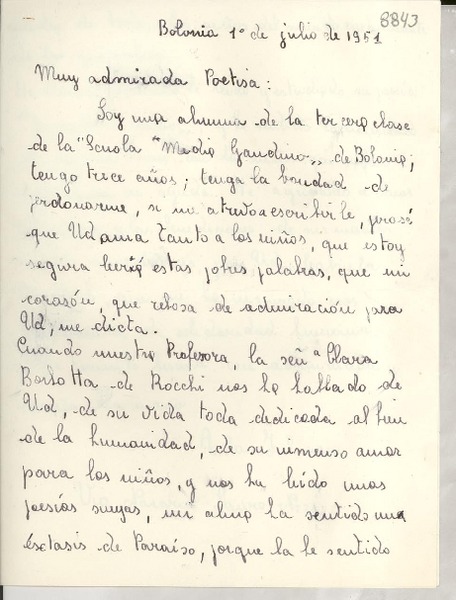 8843
Bolonia 1º de julio de 1951
Muy admirada Poetisa:
Soy una alumna de la tercera clase
de la "Scuola "Media Gandino„ de Bolonia;
tengo trece años; tenga la bondad de
perdonarme, si me atrevo a escribirle, porqué
que Ud ama tanto a los niños, que estoy
segura leerá estas pobres palabras, que mi
corasón, que rebosa de admiración para
Ud, me dicta.
Cuando nuestra Profesora, la señª Clara
Borlotta de Rocchi nos ha hablado de
Ud, de su vida toda dedicada al bien
de la humanidad, de su inmenso amor
para los niños, y nos ha leído unas
poesías suyas, mi alma ha sentido una
éxtasis de Paraíso, porque la he sentido